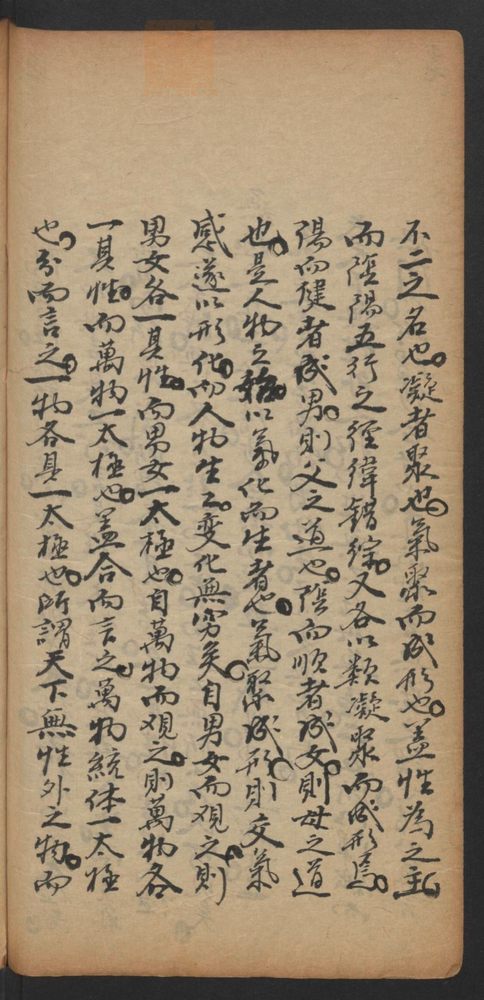 不二之名也凝者聚也氣聚而成形也盖性為之主
而陰陽五行之經緯錯綜又各以類凝聚而成形焉
陽而健者成男則父之道也陰而順者成女則母之道
也是人物之始以氣化而生者也氣聚成形則交氣
感遂以形化而人物生〻變化無窮矣自男女而观之則
男女各一其性而男女一太極也自萬物而观之則萬物各
一其性而萬物一太極也盖合而言之萬物統体一太極
也分而言之一物各具一太極也所謂天下無性外之物而